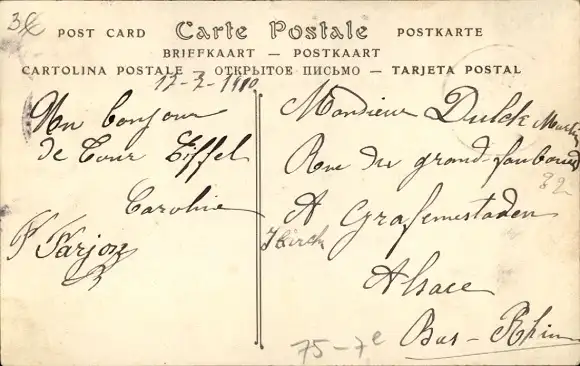 3€
POST CARD Carte Postale POSTKARTE
BRIEFKAART — POSTKAART
CARTOLINA POSTALE — ОТКРЫТОЕ ПИСЬМО — TARJETA POSTAL
17-7-1910
Un bonjour
de Tour Eiffel
Caroline
F Farjon
Monsieur Dulck Martin
Rue du grand-foubourd
82
A Grafemestaden
Ilkirck
Alsace
Bas-Rhin
75-7e